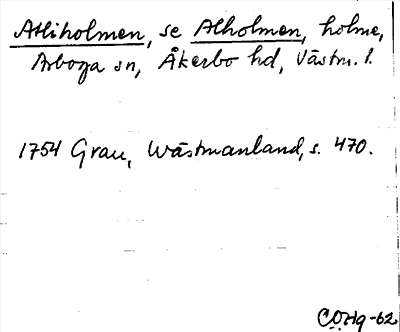 Atliholmen, se Alholmen, holme,
Arboga sn, Åkerbo hd, Västm. l.
1754 Grau, Wästmanland, s. 470.